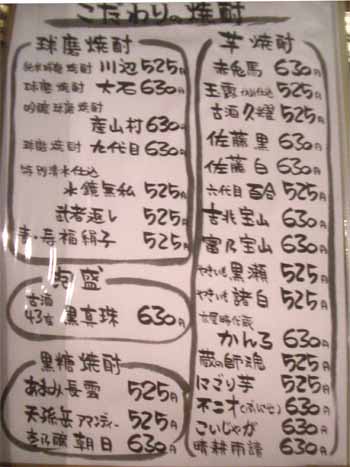 こだわりの焼酎
球磨焼酎
純米球磨焼酎 川辺 525円
球磨焼酎 大石 630円
吟醸球磨焼酎
産山村 630円
球磨焼酎 九代目 630円
特別清水仕込
水鏡無私 525円
武者返し 525円
寿福絹子 525円
泡盛
古酒
43度 黒真珠 630円
黒糖焼酎
あまみ長雲 525円
天孫岳 アマンディー 525円
朝日 630円
芋焼酎
赤兎馬 630円
玉露 525円
古酒久耀 525円
佐藤 黒 630円
佐藤 白 630円
六代目 百合 525円
吉兆宝山 630円
富乃宝山 630円
やきいも 黒瀬 525円
やきいも 諸白 525円
かんろ 630円
蔵の師魂 525円
にごり芋 525円
不二才(ぶにせ) 630円
こいじゃが 630円
晴耕雨読 630円